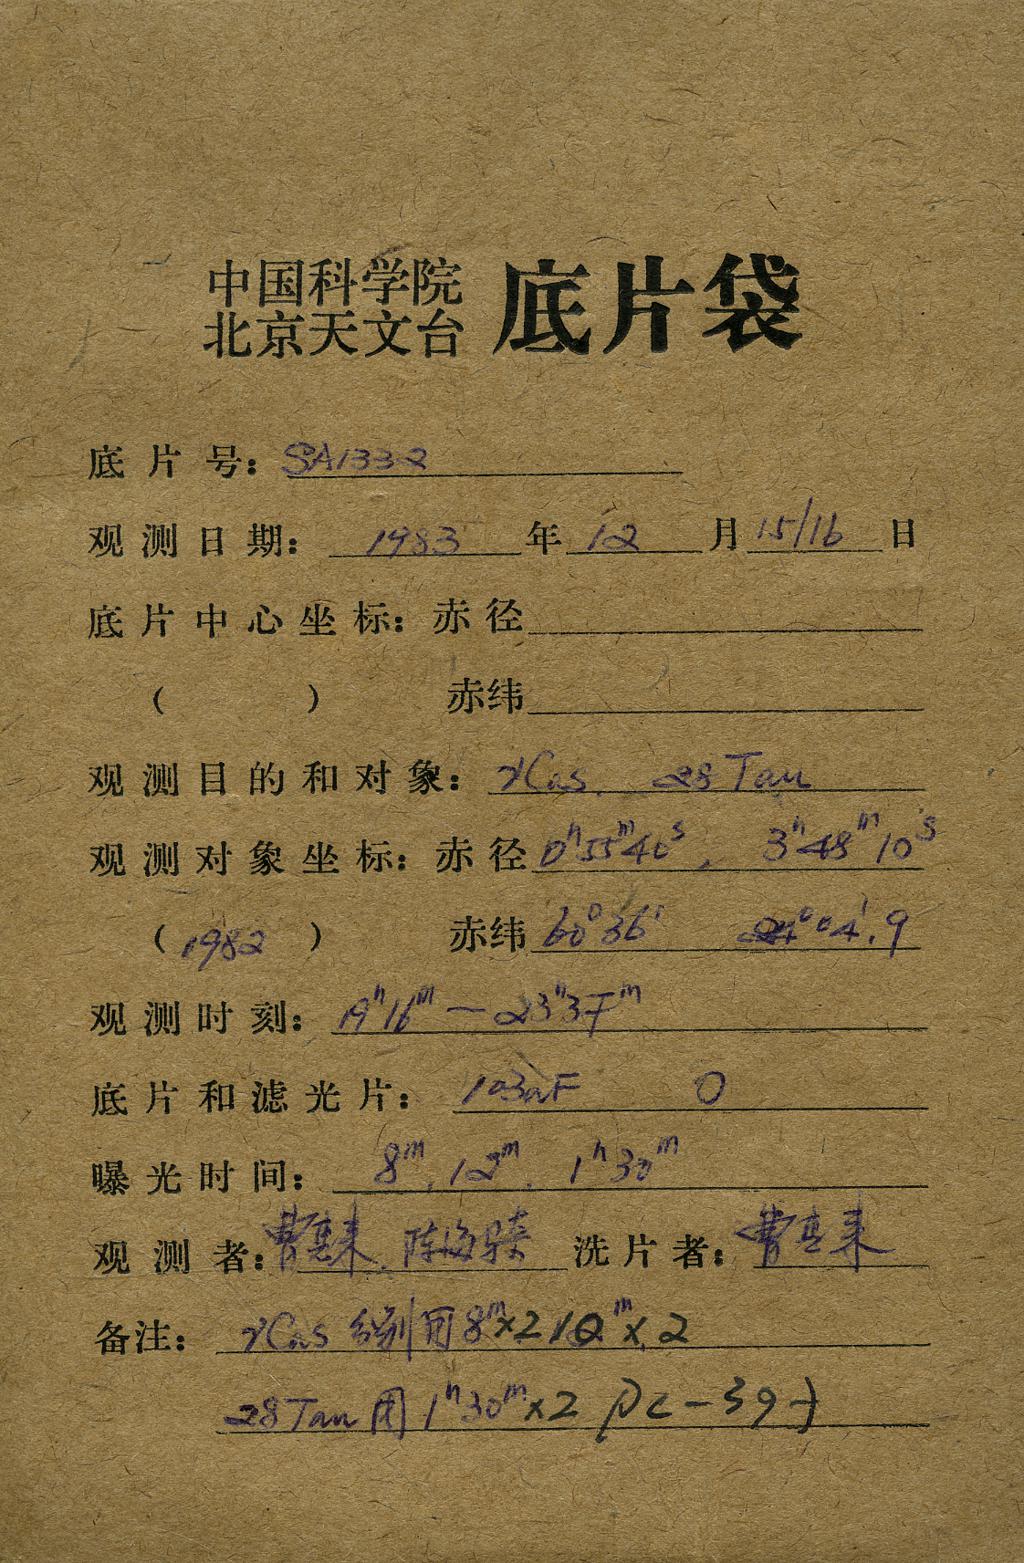 中国科学院
北京天文台
底片袋
底片号: SA1332
观测日期: 1983 年 12 月 15/16 日
底片中心坐标: 赤径
( ) 赤纬
观测目的和对象: γCas. 28 Tau
观测对象坐标: 赤径 0ʰ55ᵐ40ˢ, 3ʰ48ᵐ10ˢ
(1982) 赤纬 60°36′ 24°04′.9
观测时刻: 19ʰ16ᵐ — 23ʰ37ᵐ
底片和滤光片: 103aF O
曝光时间: 8ᵐ, 12ᵐ, 1ʰ30ᵐ
观测者: 曹惠来. 陈海 洗片者: 曹惠来
备注: γCas 分别用 8ᵐ×2 12ᵐ×2
28 Tau 用 1ʰ30ᵐ×2